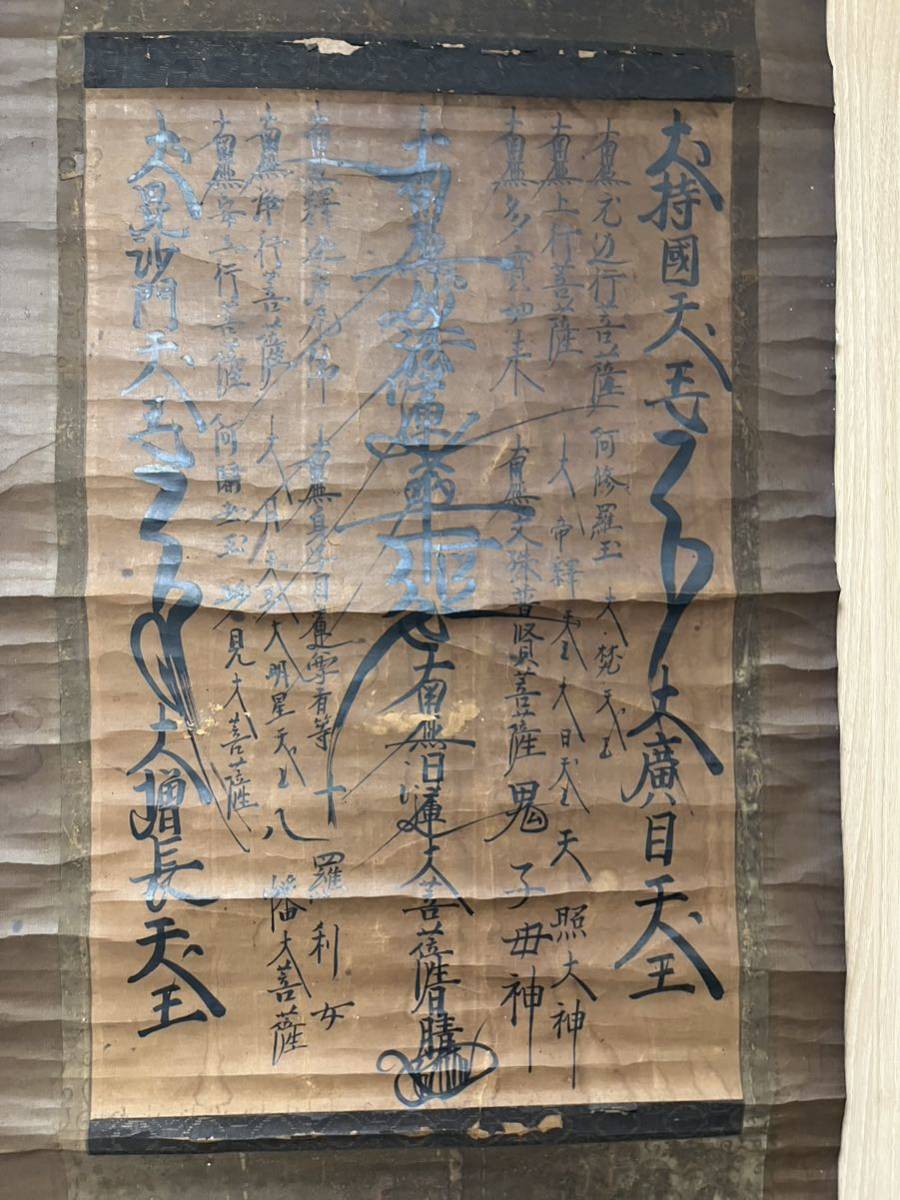 大持國天王
大廣目天王
南無無辺行菩薩 阿修羅王 大梵天王
南無上行菩薩 大帝釋天王 大日天王 天照大神
南無多寶如来 南無文殊普賢菩薩 鬼子母神
南無妙法蓮華経 南無日蓮大菩薩 日
南無釋迦牟尼佛 南無身子目連 十羅刹女
南無浄行菩薩 大月天王 大明星天王 八幡大菩薩
南無安立行菩薩 妙見大菩薩
大毘沙門天王
大増長天王